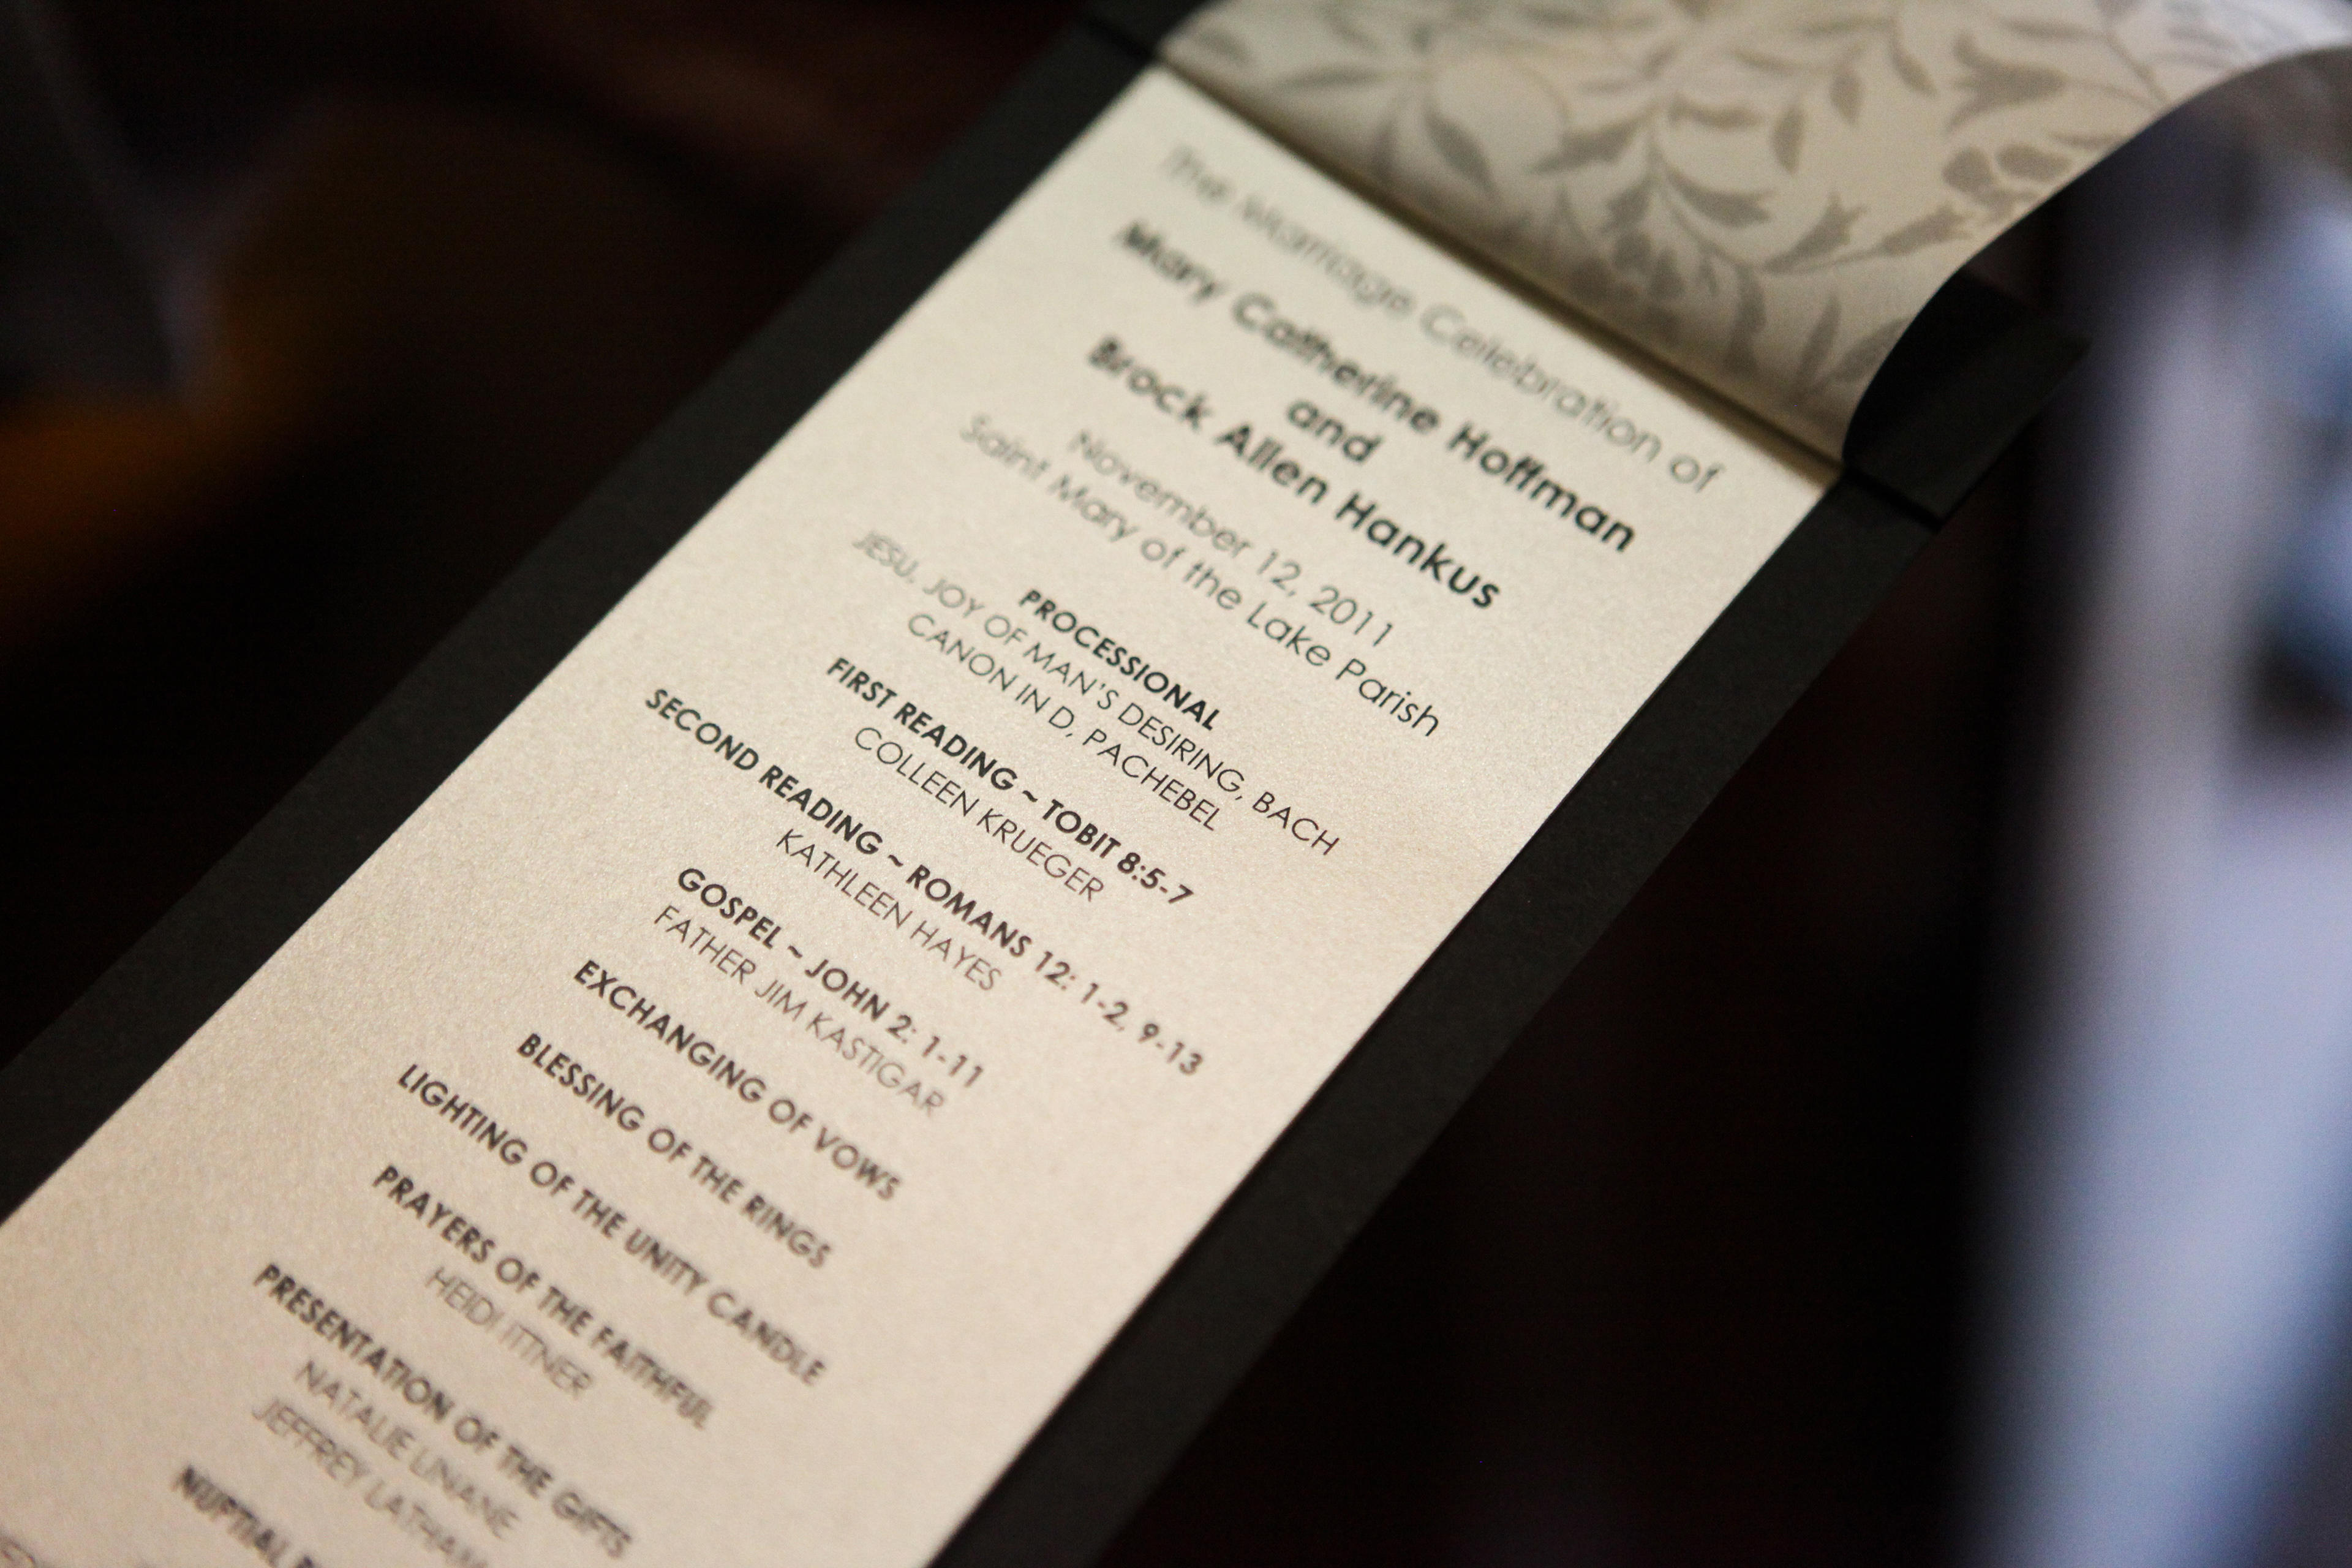 The Marriage Celebration of
Mary Catherine Hoffman
and
Brock Allen Hankus
November 12, 2011
Saint Mary of the Lake Parish
PROCESSIONAL
JESU, JOY OF MAN'S DESIRING, BACH
CANON IN D, PACHEBEL
FIRST READING ~ TOBIT 8:5-7
COLLEEN KRUEGER
SECOND READING ~ ROMANS 12: 1-2, 9-13
KATHLEEN HAYES
GOSPEL ~ JOHN 2: 1-11
FATHER JIM KASTIGAR
EXCHANGING OF VOWS
BLESSING OF THE RINGS
LIGHTING OF THE UNITY CANDLE
PRAYERS OF THE FAITHFUL
HEIDI ITTNER
PRESENTATION OF THE GIFTS
NATALIE LINANE
JEFFREY LATHAM
NUPTIAL